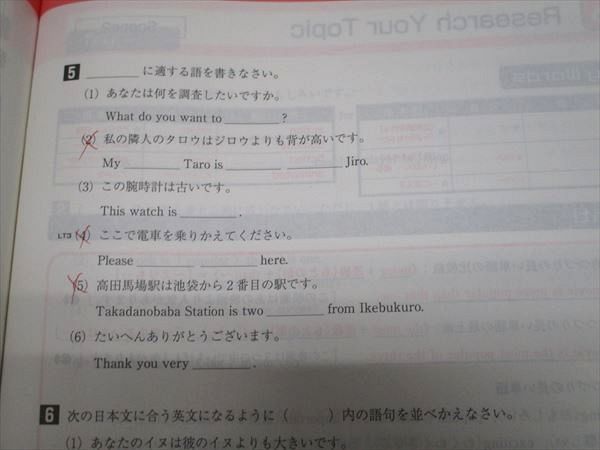 Research Your Topic
5 ＿＿＿ に適する語を書きなさい。
(1) あなたは何を調査したいですか。
What do you want to ＿＿＿ ?
(2) 私の隣人のタロウはジロウよりも背が高いです。
My ＿＿＿ Taro is ＿＿＿ ＿＿＿ Jiro.
(3) この腕時計は古いです。
This watch is ＿＿＿ .
LT3 (4) ここで電車を乗りかえてください。
Please ＿＿＿ ＿＿＿ here.
(5) 高田馬場駅は池袋から2番目の駅です。
Takadanobaba Station is two ＿＿＿ from Ikebukuro.
(6) たいへんありがとうございます。
Thank you very ＿＿＿ .
6 次の日本文に合う英文になるように（　　）内の語句を並べかえなさい。
(1) あなたのイヌは彼のイヌよりも大きいです。